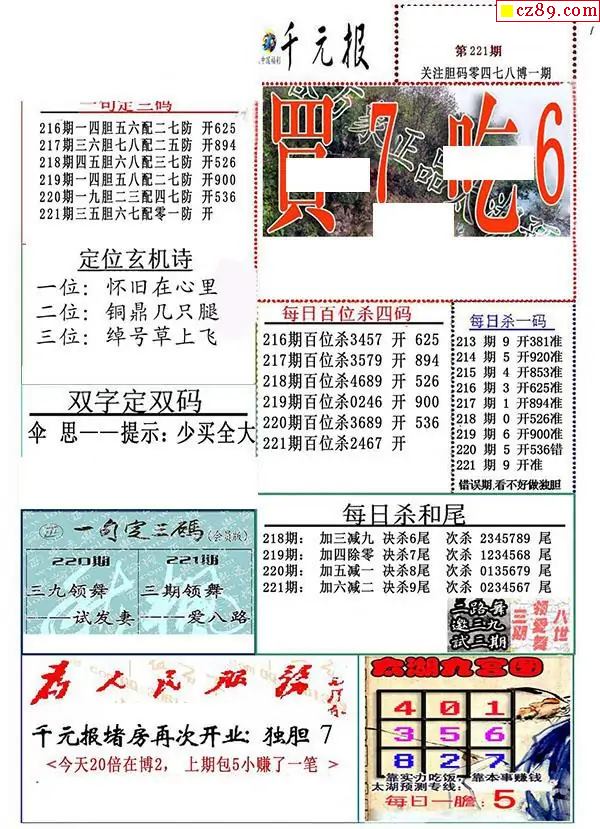 cz89.com
千元报
第221期
关注胆码零四七八博一期
一句定三码
216期一四胆五六配二七防 开625
217期三六胆七八配二五防 开894
218期四五胆六八配三七防 开526
219期一四胆五八配二七防 开900
220期一九胆二三配四七防 开536
221期三五胆六七配零一防 开
買7吃6
定位玄机诗
一位: 怀旧在心里
二位: 铜鼎几只腿
三位: 绰号草上飞
每日百位杀四码
216期百位杀3457 开 625
217期百位杀3579 开 894
218期百位杀4689 开 526
219期百位杀0246 开 900
220期百位杀3689 开 536
221期百位杀2467 开
每日杀一码
213 期 9 开381准
214 期 5 开920准
215 期 4 开853准
216 期 3 开625准
217 期 1 开894准
218 期 0 开526准
219 期 6 开900准
220 期 5 开536错
221 期 9 开准
错误期,看不好做独胆
双字定双码
伞 思——提示: 少买全大
一句定三碼(会员版)
220期
三九领舞
———试发妻
221期
三期领舞
———爱八路
每日杀和尾
218期: 加三减九 决杀6尾 次杀 2345789 尾
219期: 加四除零 决杀7尾 次杀 1234568 尾
220期: 加五减一 决杀8尾 次杀 0135679 尾
221期: 加六减二 决杀9尾 次杀 0234567 尾
三路舞
邀三九
试三期
为人民服务
千元报堵房再次开业: 独胆 7
<今天20倍在博2, 上期包5小赚了一笔 >
太湖九宫图
4 0 1
3 5 6
8 2 7
靠实力吃饭 靠本事赚钱
太湖预测专线:
每日一胆: 5